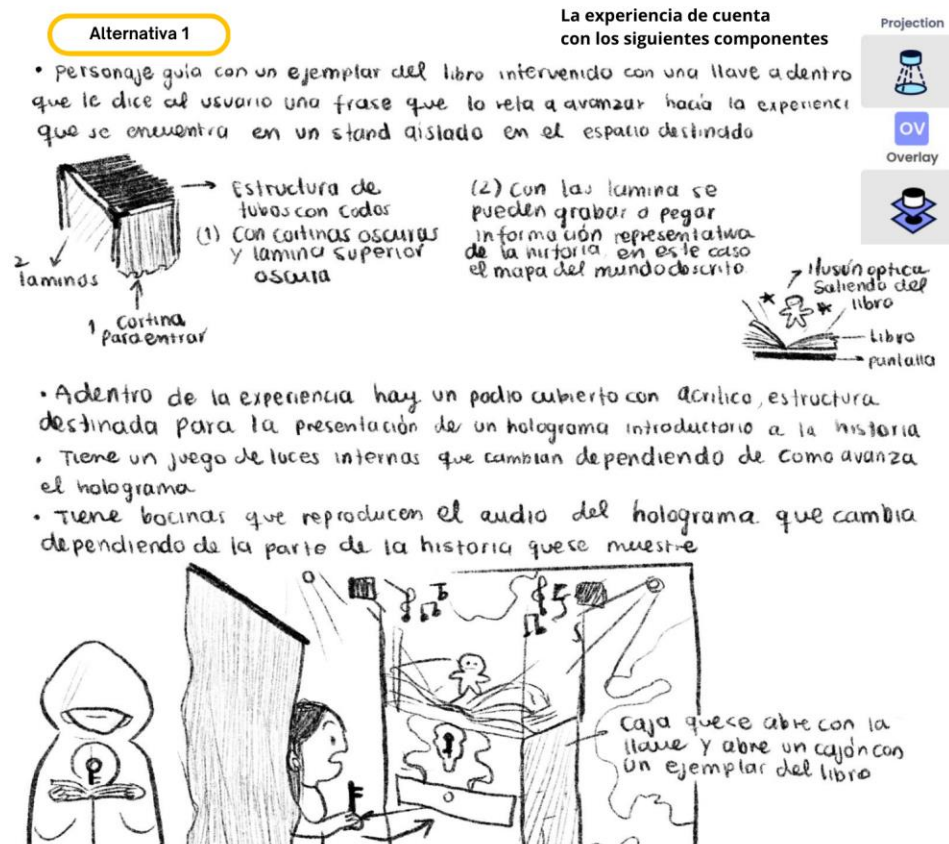 Alternativa 1
La experiencia de cuenta
con los siguientes componentes
Projection
OV
Overlay
• Personaje guía con un ejemplar del libro intervenido con una llave adentro
que le dice al usuario una frase que lo reta a avanzar hacia la experienci
que se encuentra en un stand aislado en el espacio destinado
Estructura de
tubos con codos
(1) Con cortinas oscuras
y lamina superior
oscura
2
laminas
1 Cortina
para entrar
(2) Con las lamina se
pueden grabar o pegar
información representativa
de la historia, en este caso
el mapa del mundo descrito
Ilusión optica
Saliendo del
libro
Libro
pantalla
• Adentro de la experiencia hay un podio cubierto con acrílico, estructura
destinada para la presentación de un holograma introductorio a la historia
• Tiene un juego de luces internas que cambian dependiendo de como avanza
el holograma
• Tiene bocinas que reproducen el audio del holograma que cambia
dependiendo de la parte de la historia que se muestre
Caja que se abre con la
llave y abre un cajón con
un ejemplar del libro